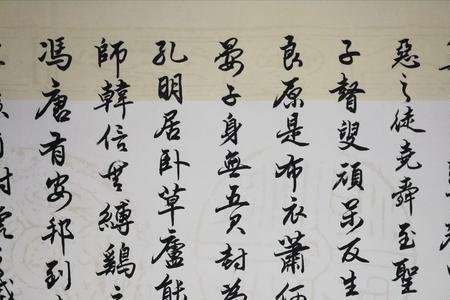 惡之徒堯舜至聖
子瞽叟頑呆反生
良原是布衣蕭何
晏子身無五尺封為
孔明居卧草廬能
師韓信無縛鷄之
馮唐有安邦到